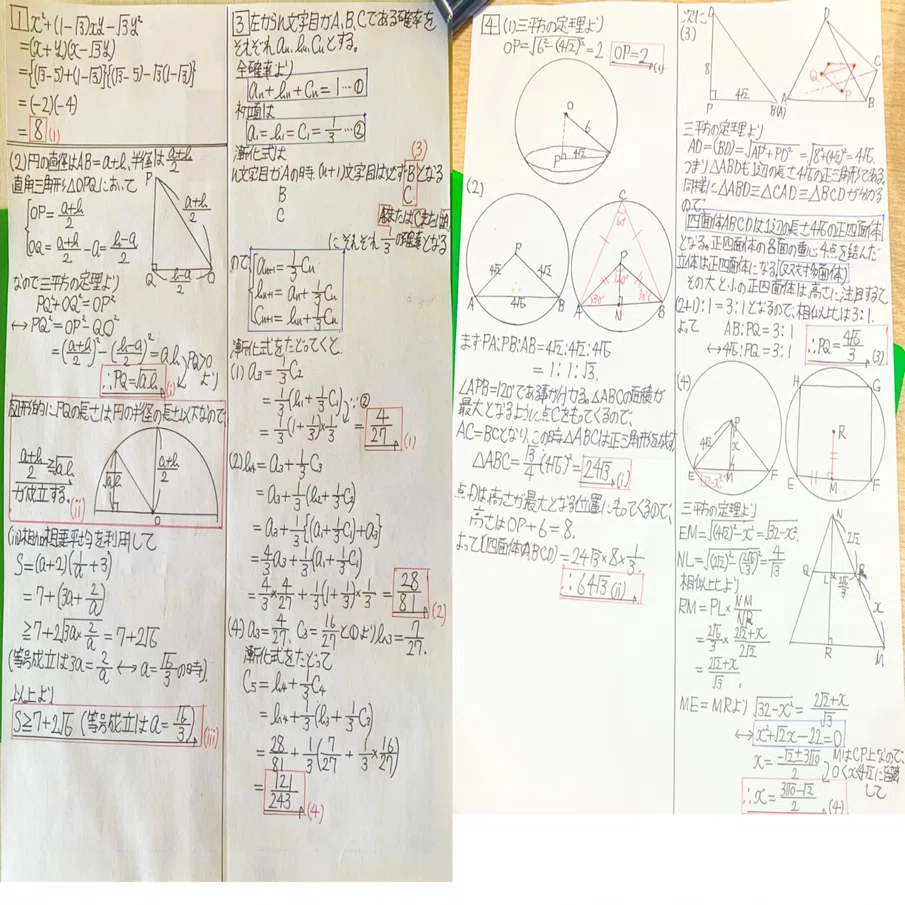 1 x²+(1-√3)xy-√3y²
=(x+y)(x-√3y)
={(√3-5)+(1-√3)}{(√3-5)-√3(1-√3)}
=(-2)(-4)
=8 (i)
(2)円の直径はAB=a+b,半径は(a+b)/2
直角三角形△OPQにおいて
OP=(a+b)/2
OQ=(a+b)/2-a=(b-a)/2
P
(a+b)/2
Q (b-a)/2 O
なので三平方の定理より
PQ²+OQ²=OP²
↔PQ²=OP²-QO²
=((a+b)/2)²-((b-a)/2)²=ab PQ>0より
∴PQ=√ab (i)
図形的にPQの長さは円の半径の長さ以下なので、
(a+b)/2≧√ab
が成立する。 (ii)
√ab (a+b)/2
O
(iii)相加相乗平均を利用して
S=(a+2)(1/a+3)
=7+(3a+2/a)
≧7+2√(3a×2/a)=7+2√6
(等号成立は3a=2/a↔a=√6/3の時)
以上より
S≧7+2√6 (等号成立はa=√6/3) (iii)
3 左からn文字目がA,B,Cである確率を
それぞれan,bn,Cnとする。
全確率より
an+bn+Cn=1…①
初項は
a1=b1=C1=1/3…②
漸化式は (3)
n文字目がAの時,(n+1)文字目は必ずBとなる
B C
C AまたはBまたはC
にそれぞれ1/3の確率となる
ので
an+1=1/3Cn
bn+1=an+1/3Cn
Cn+1=bn+1/3Cn
漸化式をたどってくと、
(1) a3=1/3C2
=1/3(b1+1/3C1) ②
=1/3(1+1/3)×1/3=4/27 (1)
(2)b4=a3+1/3C3
=a3+1/3(b2+1/3C2)
=a3+1/3{(a1+1/3C1)+a3}
=4/3a3+1/3(a1+1/3C1)
=4/3×4/27+1/3(1+1/3)×1/3=28/81 (2)
(4) a3=4/27, C3=16/27と①よりb3=7/27.
漸化式をたどって
C5=b4+1/3C4
=b4+1/3(b3+1/3C3)
=28/81+1/3(7/27+1/3×16/27)
=121/243 (4)
4 (1)三平方の定理より
OP=√(6²-(4√2)²)=2 OP=2 (i)
O
6
P 4√2
(2)
P
4√2 4√2
A 4√6 B
C
60°
P
120°
30° 30°
A N B
まずPA:PB:AB=4√2:4√2:4√6
=1:1:√3.
∠APB=120°である事が分かる。△ABCの面積が
最大となるように点Cをもってくるので、
AC=BCとなり、この時△ABCは正三角形を成す
△ABC=√3/4(4√6)²=24√3 (i)
点Dは高さが最大となる位置にもってくるので、
高さはOP+6=8.
よって(四面体ABCD)=24√3×8×1/3.
∴64√3 (ii)
次に
(3)
D
8
P 4√2 B(A)
D
Q
C
P
A B
三平方の定理より
AD=(BD)=√(AP²+PD²)=√(8²+(4√2)²)=4√6.
つまり△ABDも1辺の長さ4√6の正三角形である。
同様に△ABD≡△CAD≡△BCDが分かる
ので、
四面体ABCDは1辺の長さ4√6の正四面体
となる。正四面体の各面の重心4点を結んだ
立体は正四面体になる(双対多面体)
その大と小の正四面体は高さに注目すると
(2+1):1=3:1となるので、相似比は3:1.
よって AB:PQ=3:1
↔4√6:PQ=3:1 ∴PQ=4√6/3 (3)
(4)
P
4√2 x
E M F
√(32-x²)
H G
R
E M F
三平方の定理より
EM=√((4√2)²-x²)=√(32-x²).
相似比より
RM=PL×NM/NR
=2√6/3×(2√2+x)/2√2
=(2√2+x)/√3,
N
2√2
Q L 2√6/3
x
R M
ME=MRより √(32-x²)=(2√2+x)/√3
↔x²+√2x-22=0
x=(-√2±3√10)/2 MはCP上なので、
0<x<4√2に留意
して
∴x=(3√10-√2)/2 (4)